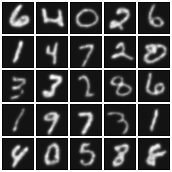 6 4 0 2 6
1 4 7 2 8
3 3 2 8 6
1 9 7 3 1
4 0 5 8 8